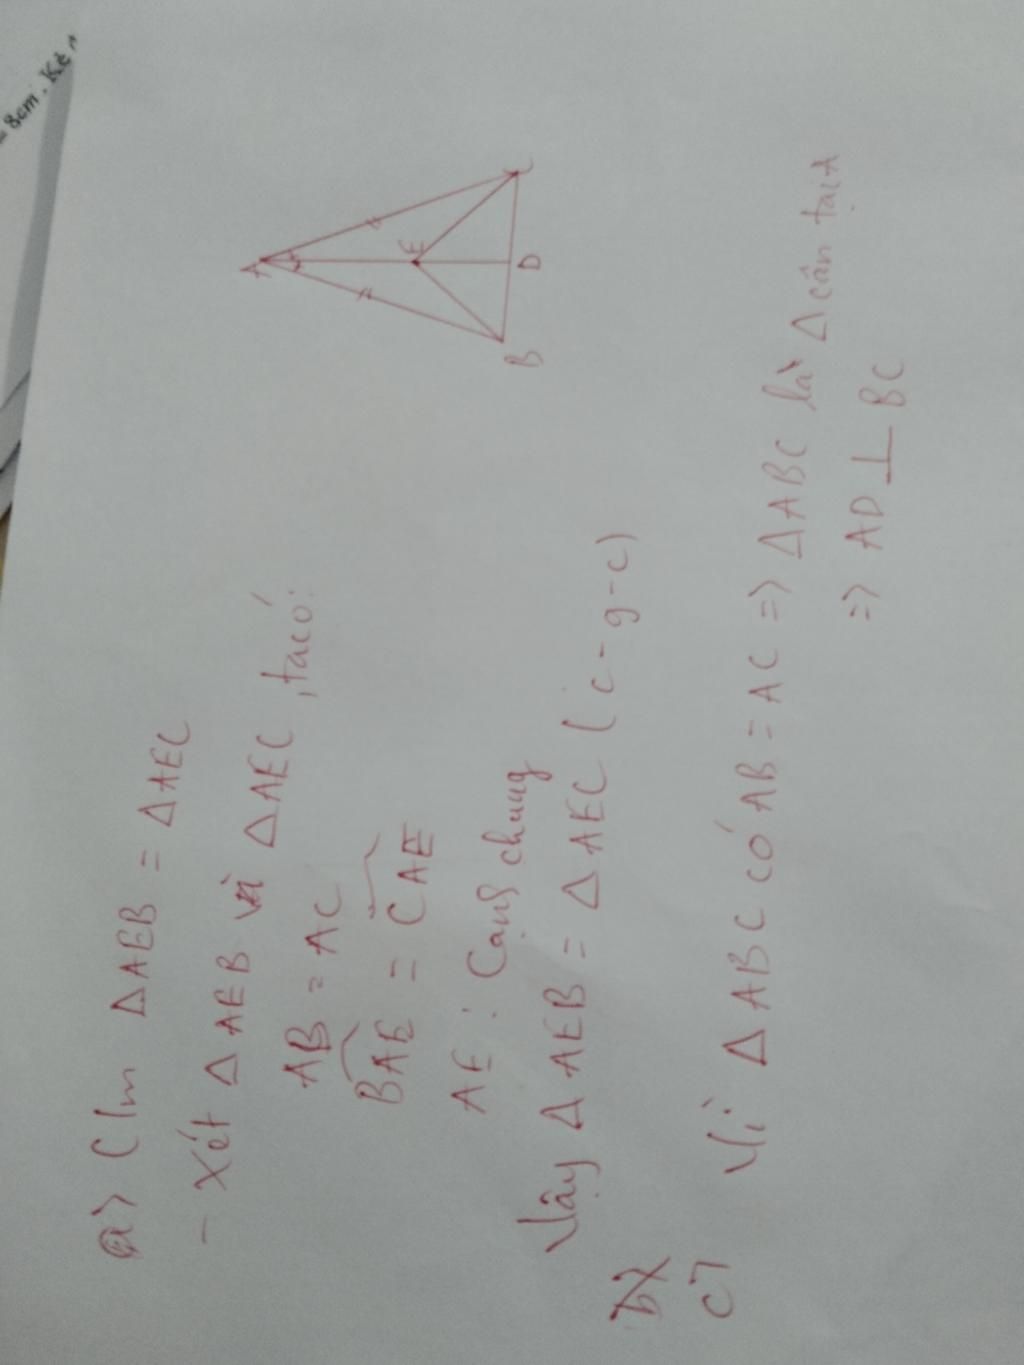 = 8cm. Kẻ
a> C/m ΔAEB = ΔAEC
- Xét ΔAEB và ΔAEC, ta có:
AB = AC
BAE = CAE
AE : Cạnh chung
Vậy ΔAEB = ΔAEC (c-g-c)
b>
c> Vì ΔABC có AB = AC => ΔABC là Δ cân tại A
=> AD ⊥ BC
A
E
B
D
C